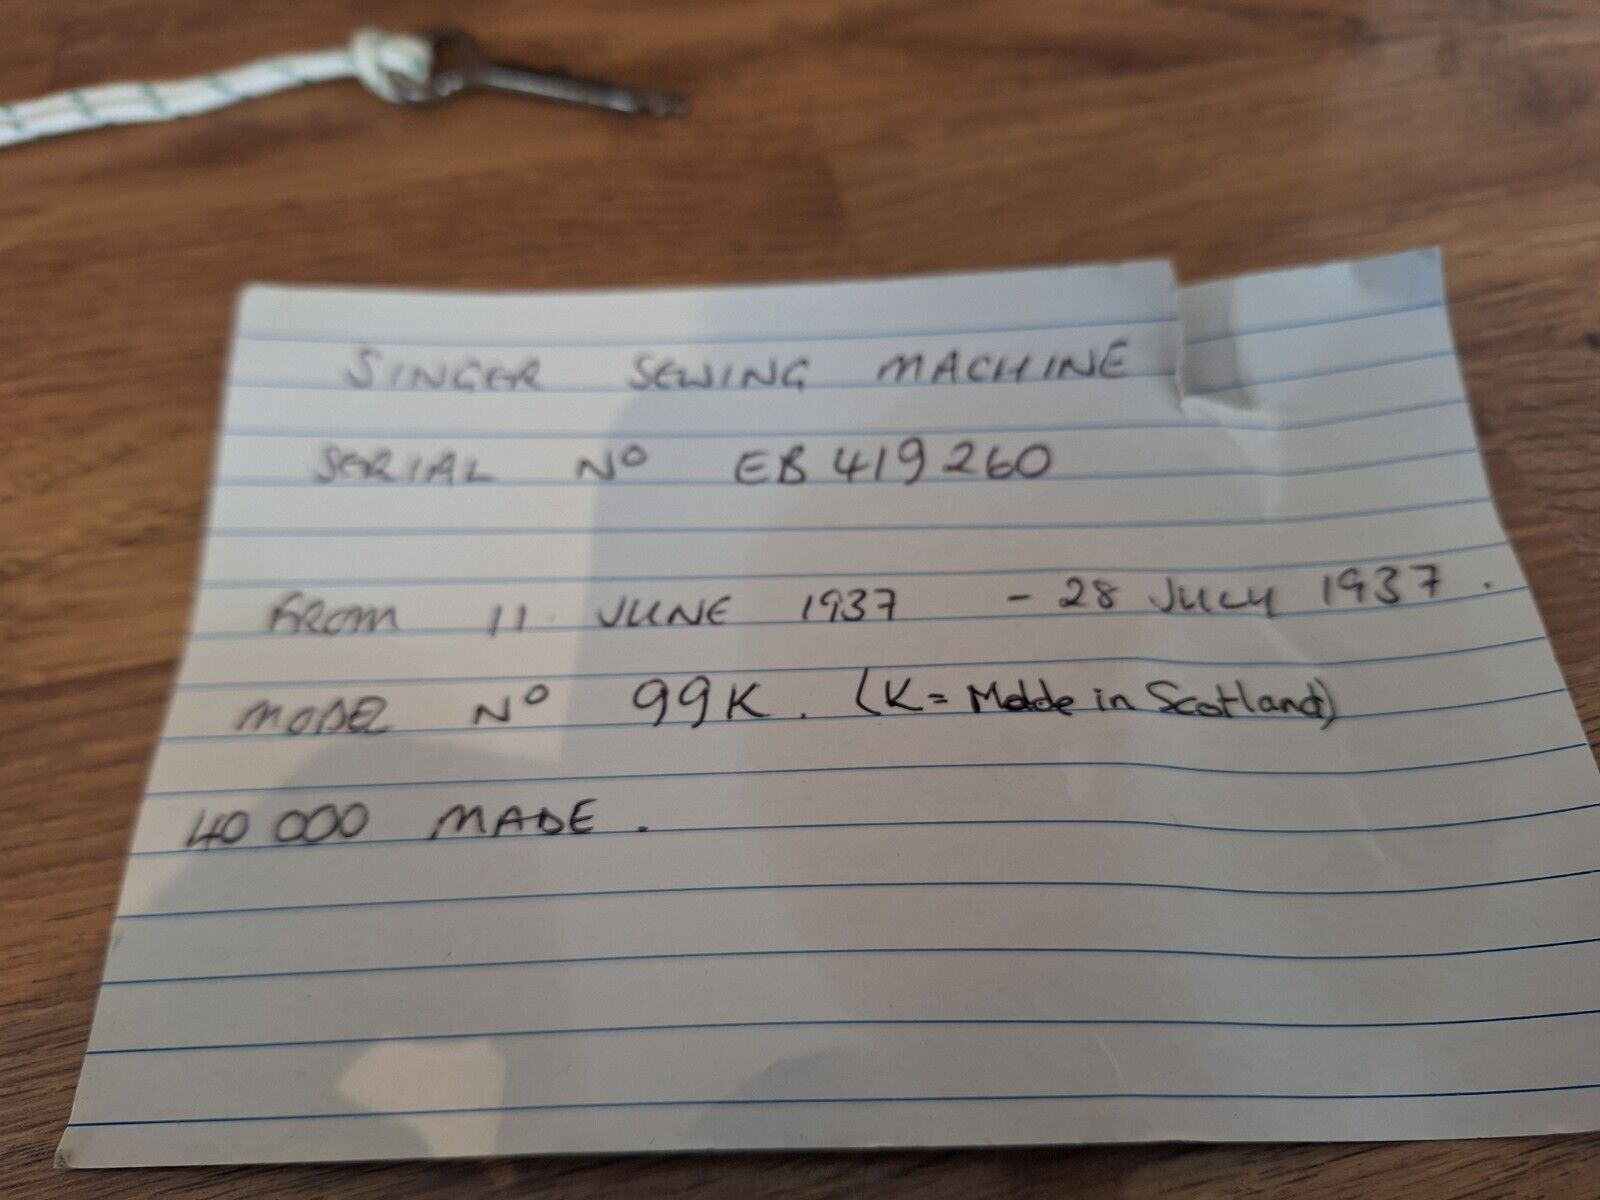 SINGER SEWING MACHINE
SERIAL Nº EB 419260
FROM 11 JUNE 1937 - 28 JULY 1937.
MODEL Nº 99K. (K = Made in Scotland)
40 000 MADE.